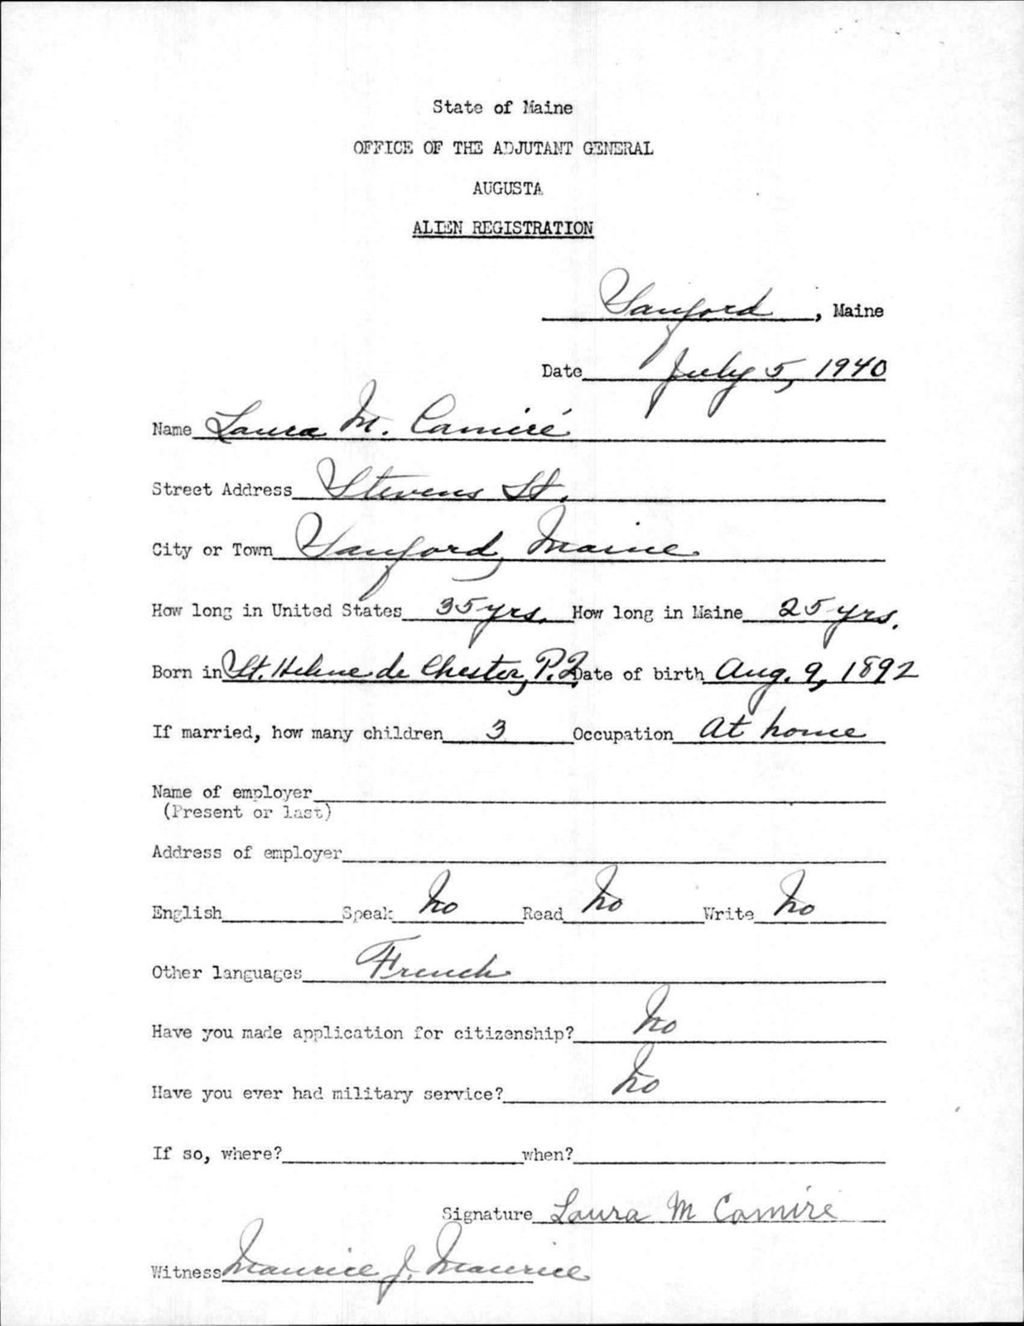 State of Maine
OFFICE OF THE ADJUTANT GENERAL
AUGUSTA
ALIEN REGISTRATION
Sanford, Maine
Date July 5, 1940
Name Laura M. Camiré
Street Address Stevens St.
City or Town Sanford, Maine
How long in United States 35 yrs. How long in Maine 25 yrs.
Born in St. Helene de Chester, P.Q. Date of birth Aug. 9, 1892
If married, how many children 3 Occupation At home
Name of employer
(Present or last)
Address of employer
English Speak No Read No Write No
Other languages French
Have you made application for citizenship? No
Have you ever had military service? No
If so, where? when?
Signature Laura M Camiré
Witness Maurice J. Maurice